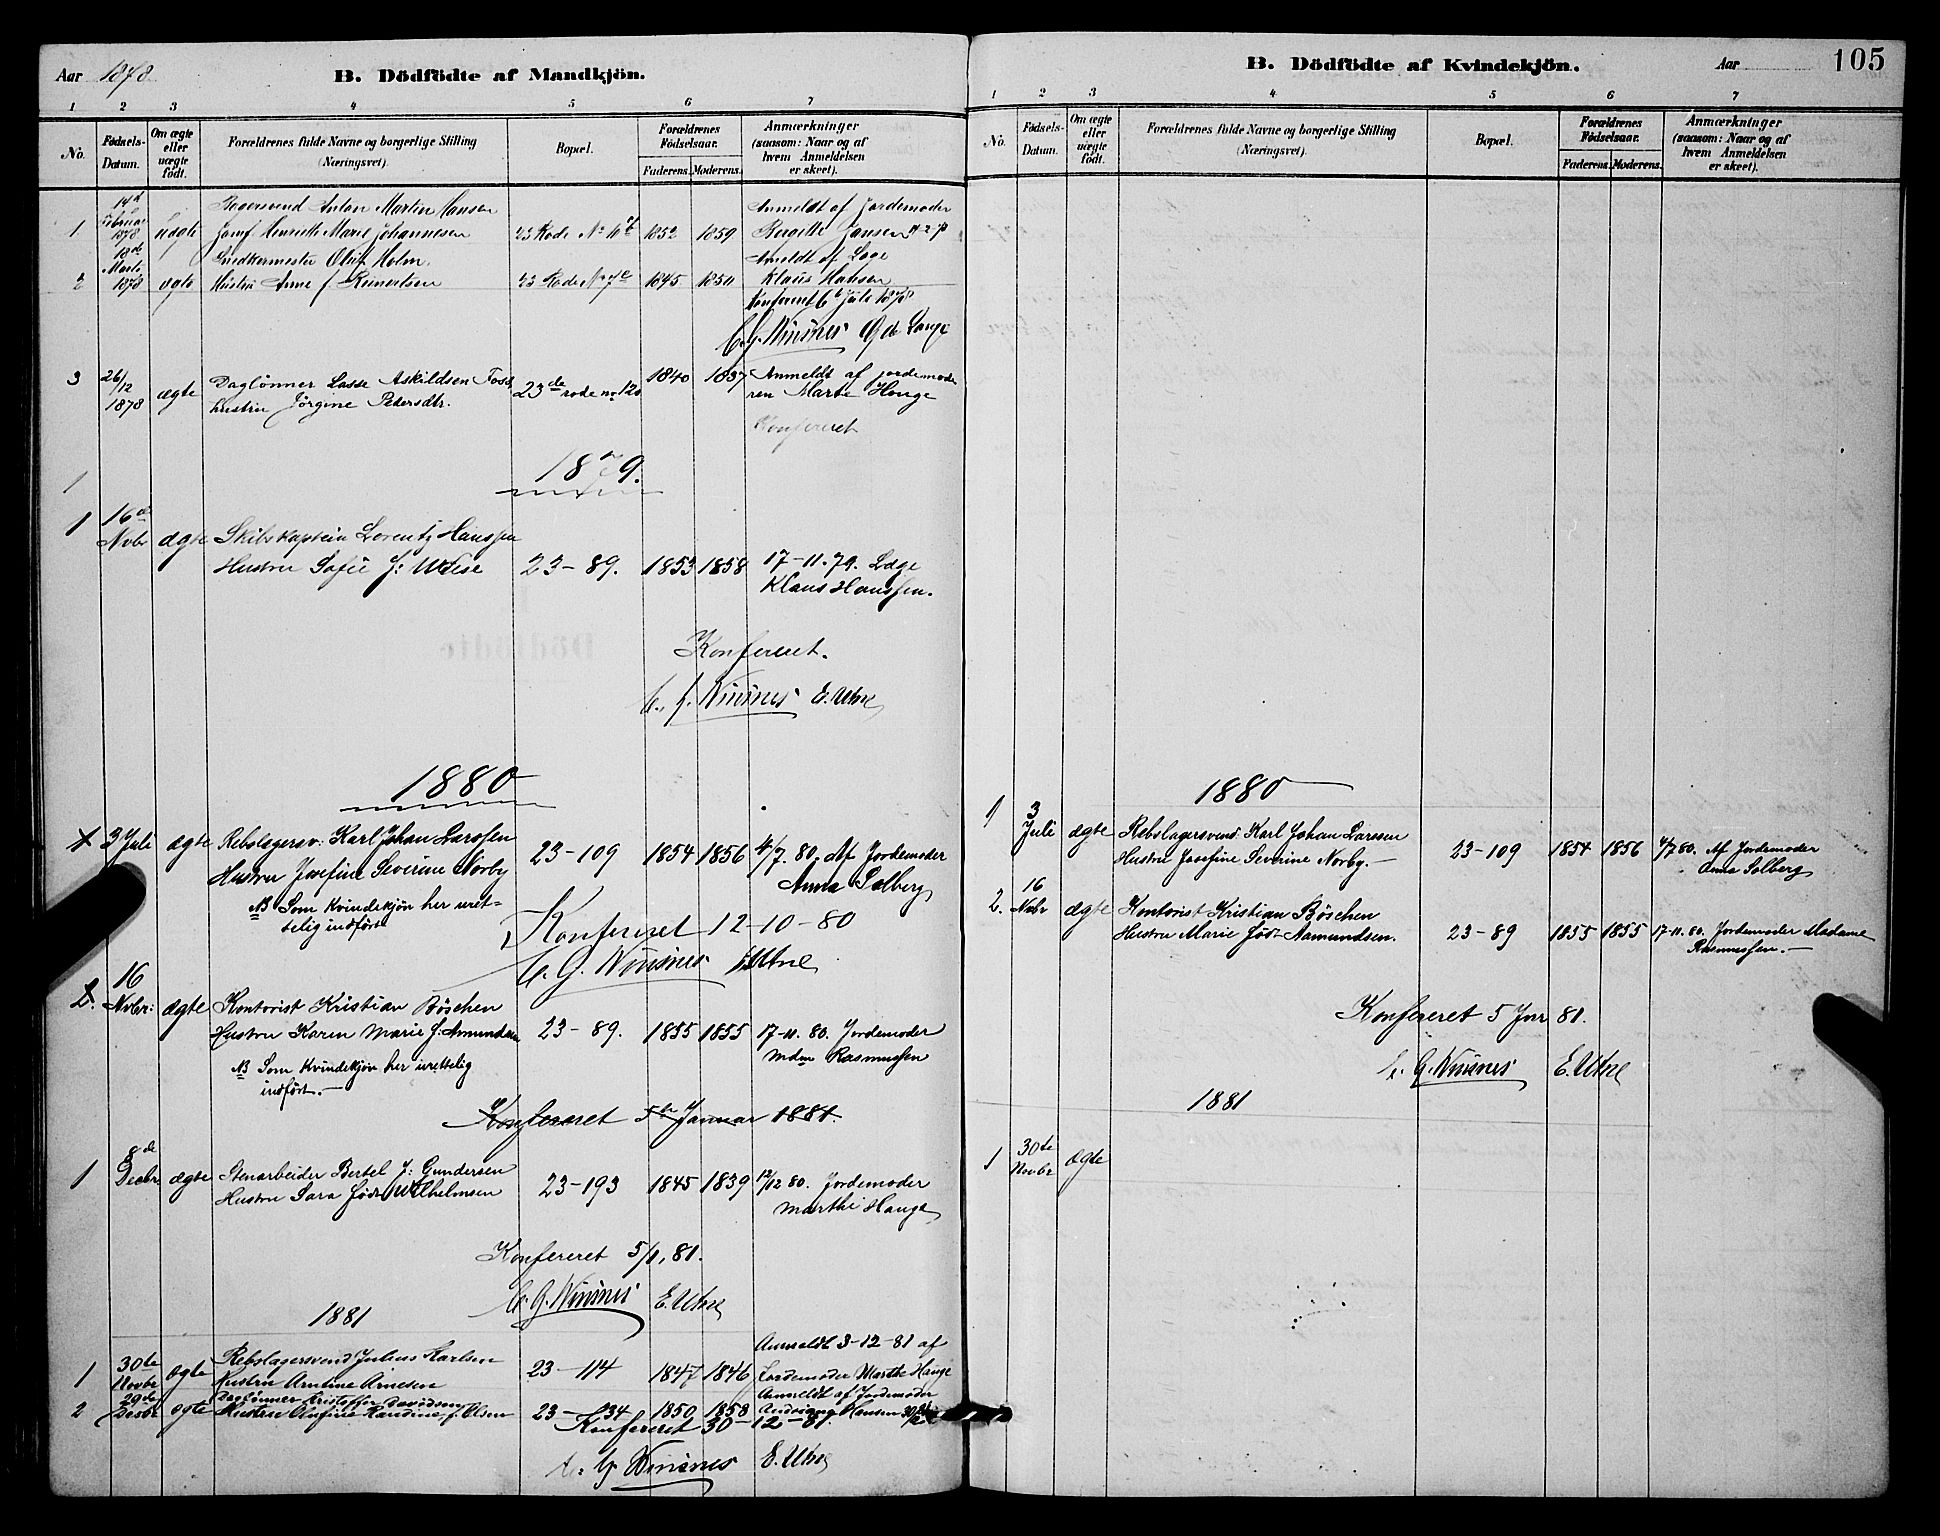 Aar 1878
B. Dödfödte af Mandkjön.
1 2 3 4 5 6 7
No.
Födsels-Datum.
Om ægte eller uægte födt.
Forældrenes fulde Navne og borgerlige Stilling
(Næringsvei).
Bopæl.
Forældrenes Födselsaar.
Faderens. Moderens.
Anmærkninger
(saasom: Naar og af
hvem Anmeldelsen
er skeet).
14d Februar 1878
Anton Martin Hansen
Anmeldt af Jordemoder
1 uægte Henriette Marie Johannesen 23 Rode No 1852 1859 Jansen
18de Marts 1878
Snedkermester Oluf Holm.
Anmeldt af Læge
2 ægte Hustru Anne f. Reinertsen 23 Rode No 1845 1850 Klaus Hansen
Konfereret 6 Juli 1878
C. G. Winsnes Lange
3 26/12 1878 ægte Daglönner Lasse Askildsen Foss, 23de rode no 120 1840 1837 Anmeldt af jordemode
hustru Jörgine Petersdtr. ren Marte Hauge
Konfereret
1879.
1
1 16de Novbr ægte Skibskaptein Lorentz Hanssen
Hustru Sofie f: Wiese 23-89. 1853 1858 17-11.79. Læge
Klaus Hanssen.
Konfereret.
C. G. Winsnes E. Utne
1880
1 3 Juli ægte Rebslagersv. Karl Johan Larssen 23-109 1854 1856 4/7. 80. Af Jordemoder
Hustru Josefine Severine Norby Anna Solberg
NB Som Kvindekjön her uret-
telig indfört
Konfereret 12-10-80
C. G. Winsnes E. Utne
2. 16 Novbr: ægte Kontorist Kristian Böschen
Hustru Karen Marie f. Amundsen 23-89. 1855 1855 17-11. 80. Jordemoder
Mdm Rasmussen
NB Som Kvindekjön her urettelig
indfört.—
Konfereret 5te Januar 1881.
1 8de Decbr ægte Stenarbeider Bertel J: Gundersen
Hustru Sara Födt Wilhelmsen 23-193 1845 1839 12/12 80. Jordemoder
Marthe Hauge
Konfereret 5/1, 81.
C. G. Winsnes E. Utne
1881
1 30te Novbr ægte Rebslagersvend Julius Karlsen
Hustru Arntine Arnesen 23-114 1847 1846 Anmeldt 3-12-81 af
Jordemoder Marthe Hauge
2 29de Decbr ægte Daglönner Kristoffer Davidsen
Hustru Olufine Randine f. Olsen 23-234 1850 1858 Anmeldt af Jordemoder
Hansen
Konfereret 30-12-81.
C. G. Winsnes E. Utne
B. Dödfödte af Kvindekjön.
Aar
105
1 2 3 4 5 6 7
No.
Födsels-Datum.
Om ægte eller uægte födt.
Forældrenes fulde Navne og borgerlige Stilling
(Næringsvei).
Bopæl.
Forældrenes Födselsaar.
Faderens. Moderens.
Anmærkninger
(saasom: Naar og af
hvem Anmeldelsen
er skeet).
1880
1 3 Juli ægte Rebslagersvend Karl Johan Larssen
Hustru Josefine Severine Norby.— 23-109 1854 1856 4/7 80. Af Jordemoder
Anna Solberg
2. 16 Nobr ægte Kontorist Kristian Böschen
Hustru Marie födt Aamundsen. 23-89 1855 1855 17-11. 80. Jordemoder Madame
Rasmussen.—
Konfereret 5 Jnr 81.
C. G. Winsnes E. Utne
1881
1 30te Novbr ægte